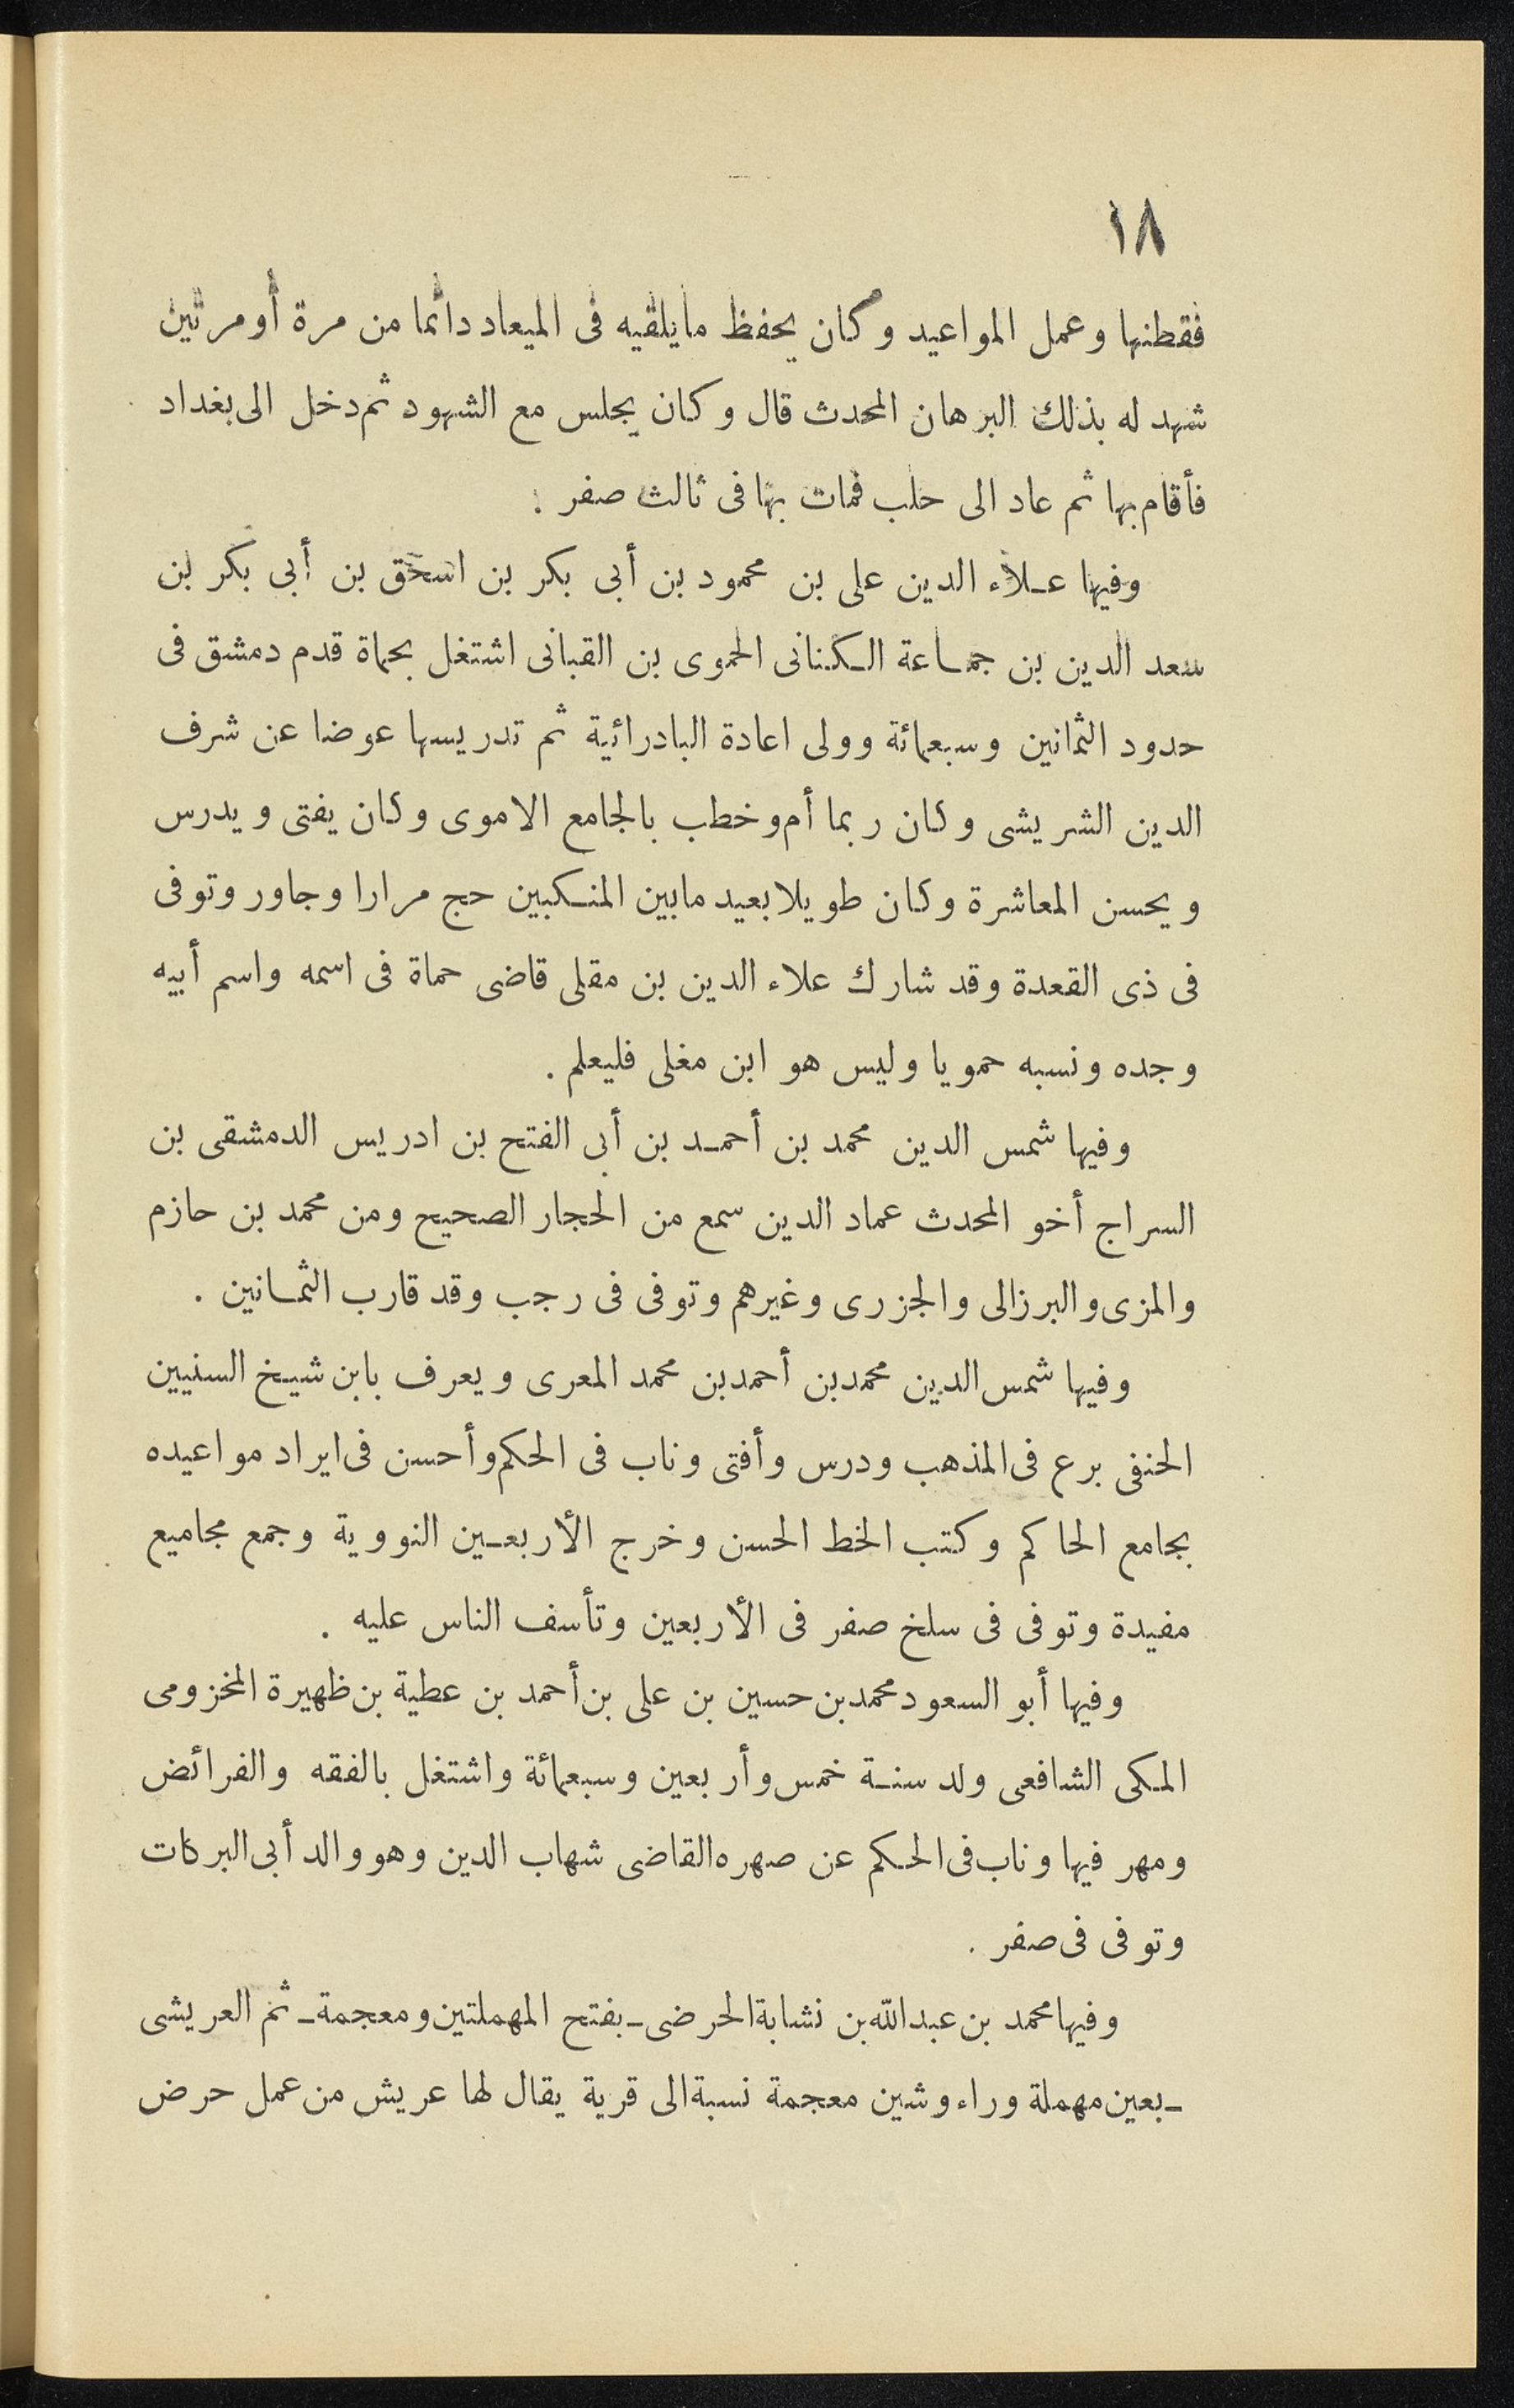 ١٨
فقطنها وعمل المواعيد وكان يحفظ مايلقيه فى الميعاد دائما من مرة أو مرتين
شهد له بذلك البرهان المحدث قال وكان يجلس مع الشهود ثم دخل الى بغداد
فأقام بها ثم عاد الى حلب فمات بها فى ثالث صفر .
وفيها عـلاء الدين على بن محمود بن أبى بكر بن اسحق بن أبى بكر بن
سعد الدين بن جمـاعة الـكنانى الحموى بن القبانى اشتغل بحماة قدم دمشق فى
حدود الثمانين وسبعمائة وولى اعادة البادرائية ثم تدريسها عوضا عن شرف
الدين الشريشى وكان ربما أم وخطب بالجامع الاموى وكان يفتى ويدرس
ويحسن المعاشرة وكان طويلا بعيد مابين المنـكبين حج مرارا وجاور وتوفى
فى ذى القعدة وقد شارك علاء الدين بن مقلى قاضى حماة فى اسمه واسم أبيه
وجده ونسبه حمويا وليس هو ابن مغلى فليعلم .
وفيها شمس الدين محمد بن أحمـد بن أبى الفتح بن ادريس الدمشقى بن
السراج أخو المحدث عماد الدين سمع من الحجار الصحيح ومن محمد بن حازم
والمزى والبرزالى والجزرى وغيرهم وتوفى فى رجب وقد قارب الثمـانين .
وفيها شمس الدين محمد بن أحمد بن محمد المعرى ويعرف بابن شيـخ السنيين
الحنفى برع فى المذهب ودرس وأفتى وناب فى الحكم وأحسن فى ايراد مواعيده
بجامع الحاكم وكتب الخط الحسن وخرج الأربعـين النووية وجمع مجاميع
مفيدة وتوفى فى سلخ صفر فى الأربعين وتأسف الناس عليه .
وفيها أبو السعود محمد بن حسين بن على بن أحمد بن عطية بن ظهيرة المخزومى
المـكى الشافعى ولد سنـة خمس وأربعين وسبعمائة واشتغل بالفقه والفرائض
ومهر فيها وناب فى الحـكم عن صهره القاضى شهاب الدين وهو والد أبى البركات
وتوفى فى صفر .
وفيها محمد بن عبد الله بن نشابة الحرضى ـ بفتح المهملتين ومعجمة ـ ثم العريشى
ـ بعين مهملة وراء وشين معجمة نسبة الى قرية يقال لها عريش من عمل حرض